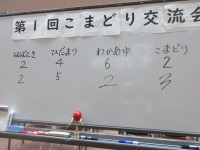 第1回こまどり交流会
はばたき ひだまり わかあゆ こまどり
2 4 6 2
2 5 2 3